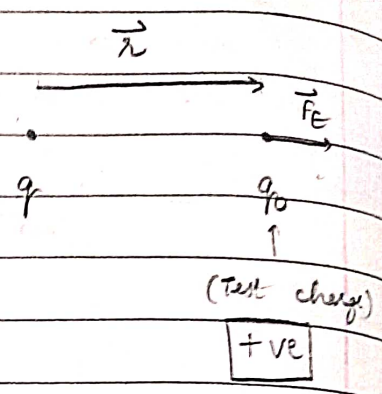 r⃗
F⃗E
q q₀
↑
(Test charge)
+ve